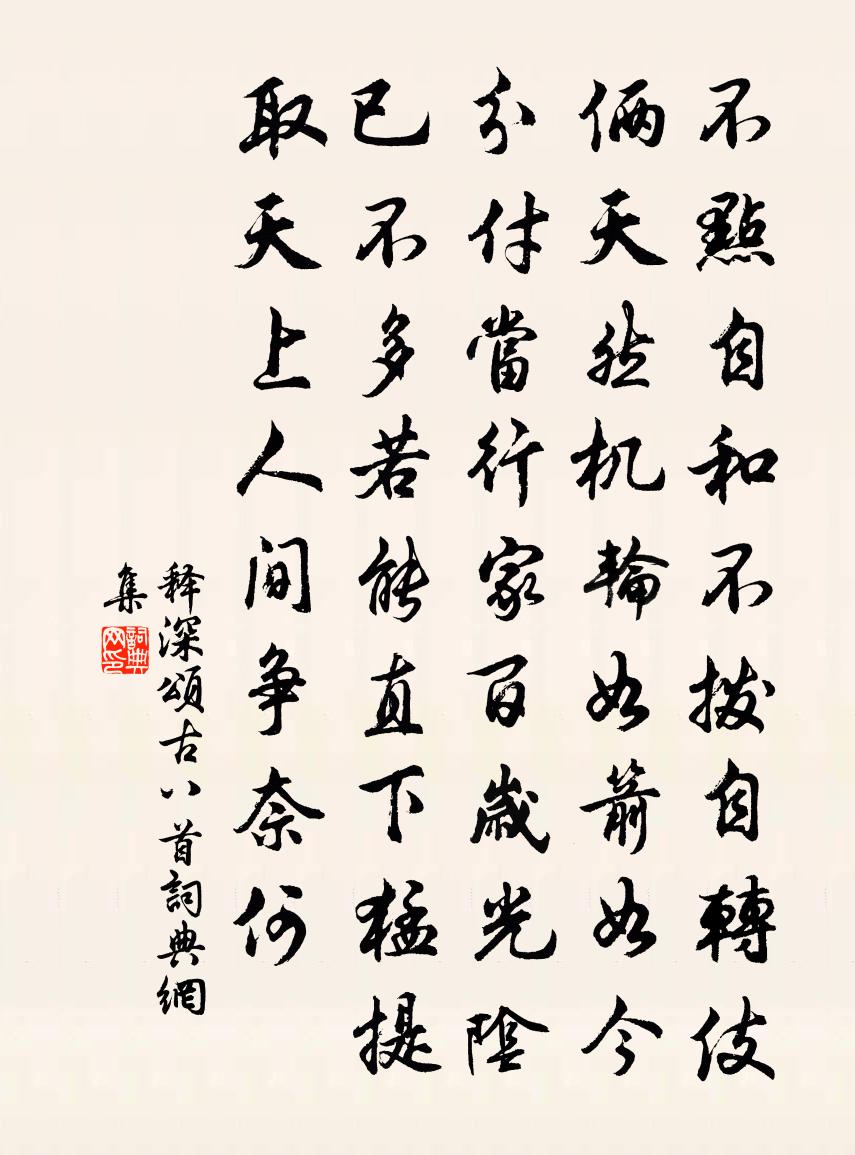 不點自和不拨自轉伎
倆天然机輪如箭如今
分付當行家百歲光陰
已不多若能直下猛提
取天上人间争奈何
释深頌古八首詞典網
集
詞典网印